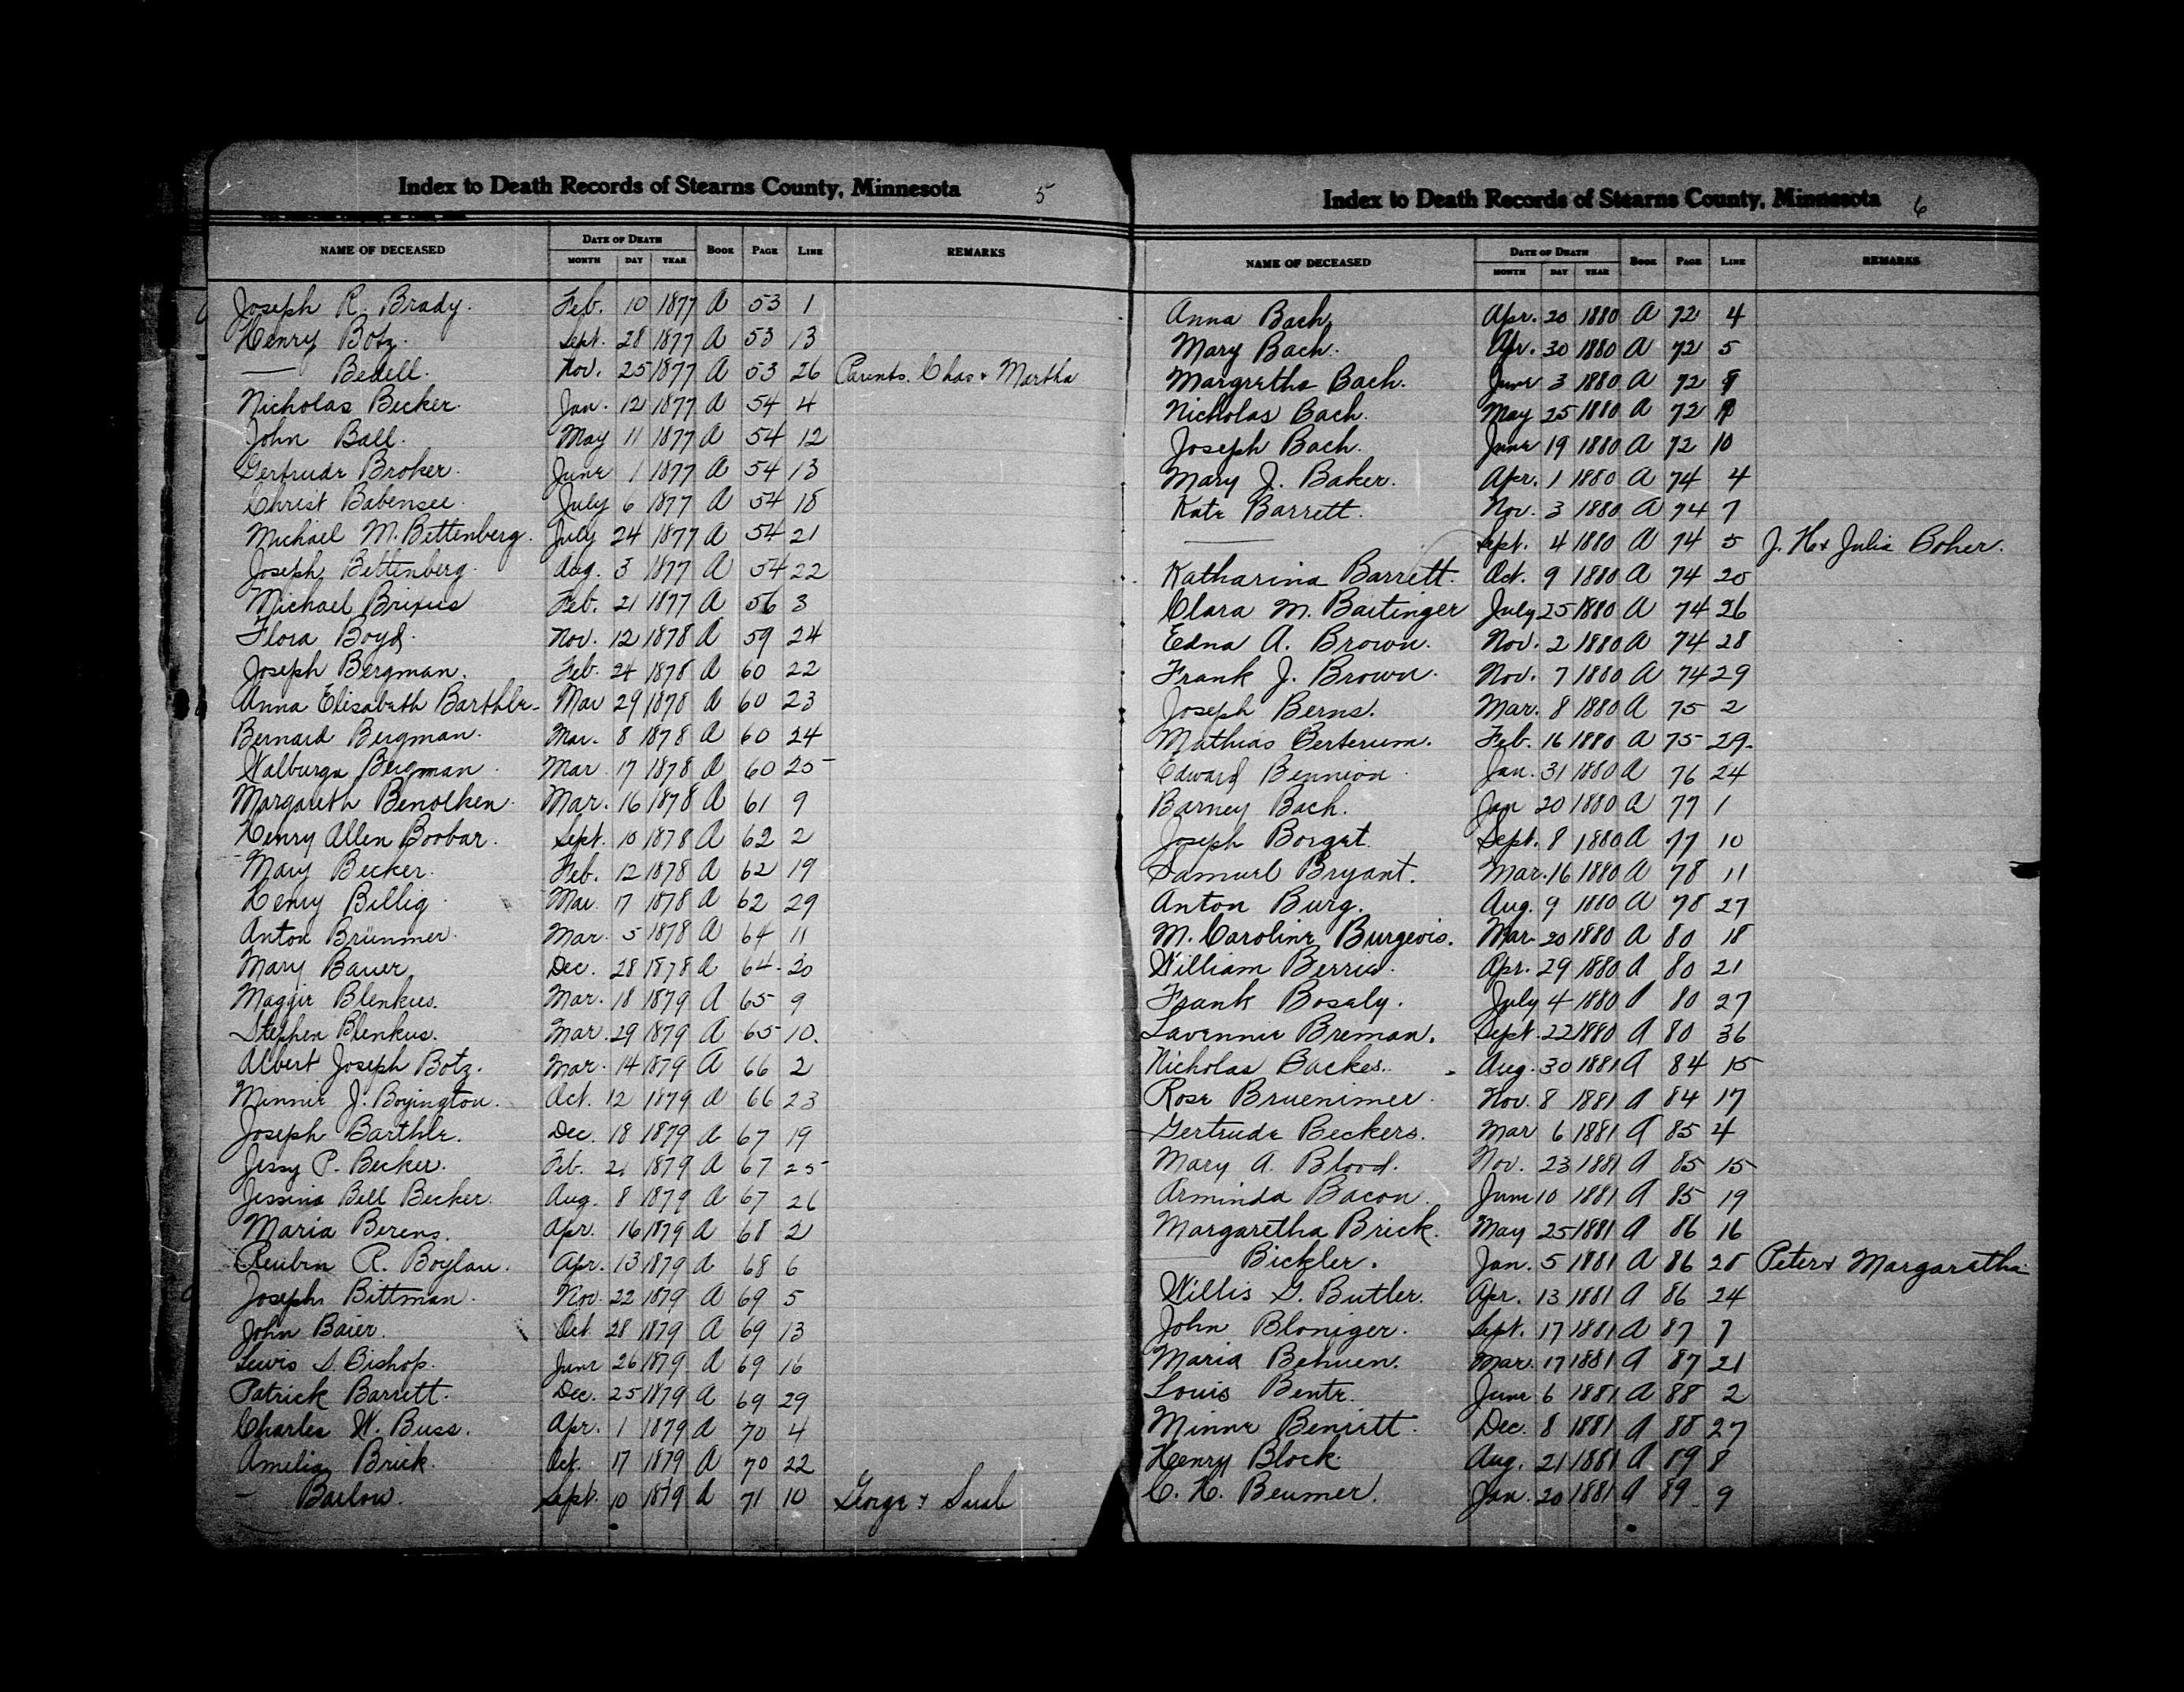 Index to Death Records of Stearns County, Minnesota 5
NAME OF DECEASED DATE OF DEATH BOOK PAGE LINE REMARKS
MONTH DAY YEAR
Joseph R. Brady. Feb. 10 1877 A 53 1
Henry Botz. Sept. 28 1877 A 53 13
— Bedell. Nov. 25 1877 A 53 26 Parents. Chas + Martha
Nicholas Becker. Jan. 12 1877 A 54 4
John Ball. May 11 1877 A 54 12
Gertrude Broker. June 1 1877 A 54 13
Christ Babensee. July 6 1877 A 54 18
Michael M. Bettenberg. July 24 1877 A 54 21
Joseph Bettenberg. Aug. 3 1877 A 54 22
Michael Brixius Feb. 21 1877 A 56 3
Flora Boyd. Nov. 12 1878 A 59 24
Joseph Bergman. Feb. 24 1878 A 60 22
Anna Elisabeth Barthle. Mar 29 1878 A 60 23
Bernard Bergman. Mar. 8 1878 A 60 24
Walburga Bergman. Mar 17 1878 A 60 25
Margareth Benolken. Mar. 16 1878 A 61 9
Henry Allen Boobar. Sept. 10 1878 A 62 2
Mary Becker. Feb. 12 1878 A 62 19
Henry Billig. Mar. 17 1878 A 62 29
Anton Brümmer. Mar. 5 1878 A 64 11
Mary Bauer Dec. 28 1878 A 64 20
Maggie Blenkus. Mar. 18 1879 A 65 9
Stephen Blenkus. Mar. 29 1879 A 65 10.
Albert Joseph Botz. Mar. 14 1879 A 66 2
Minnie J. Boyington. Oct. 12 1879 A 66 23
Joseph Barthle. Dec. 18 1879 A 67 19
Jessy P. Becker. Feb. 2 1879 A 67 25
Jessina Bell Becker. Aug. 8 1879 A 67 26
Maria Berens. Apr. 16 1879 A 68 2
Reuben R. Boylan. Apr. 13 1879 A 68 6
Joseph Bittman. Nov. 22 1879 A 69 5
John Baier. Oct. 28 1879 A 69 13
Lewis S. Bishop. June 26 1879 A 69 16
Patrick Barrett. Dec. 25 1879 A 69 29
Charles W. Buss. Apr. 1 1879 A 70 4
Amelia Brick. Oct. 17 1879 A 70 22
— Barlow. Sept. 10 1879 A 71 10 George +
Index to Death Records of Stearns County, Minnesota 6
NAME OF DECEASED DATE OF DEATH BOOK PAGE LINE REMARKS
MONTH DAY YEAR
Anna Bach. Apr. 20 1880 A 72 4
Mary Bach. Apr. 30 1880 A 72 5
Margretha Bach. June 3 1880 A 72
Nicholas Bach. May 25 1880 A 72
Joseph Bach. June 19 1880 A 72 10
Mary J. Baker. Apr. 1 1880 A 74 4
Kate Barrett. Nov. 3 1880 A 74 7
— Sept. 4 1880 A 74 5 J. H + Julia Boher.
Katharina Barrett. Oct. 9 1880 A 74 20
Clara M. Baitinger July 25 1880 A 74 26
Edna A. Brown. Nov. 2 1880 A 74 28
Frank J. Brown. Nov. 7 1880 A 74 29
Joseph Berns. Mar. 8 1880 A 75 2
Mathias Berterum. Feb. 16 1880 A 75 29
Edward Bennion. Jan. 31 1880 A 76 24
Barney Bach. Jan 20 1880 A 77 1
Joseph Borgat. Sept. 8 1880 A 77 10
Samuel Bryant. Mar. 16 1880 A 78 11
Anton Burg. Aug. 9 1880 A 78 27
M. Caroline Burgeois. Mar. 20 1880 A 80 18
William Berris. Apr. 29 1880 A 80 21
Frank Bosely. July 4 1880 A 80 27
Lavennie Breman. Sept. 22 1880 A 80 36
Nicholas Backes. Aug. 30 1881 A 84 15
Rose Bruenimer. Nov. 8 1881 A 84 17
Gertrude Beckers. Mar 6 1881 A 85 4
Mary A. Blood. Nov. 23 1881 A 85 15
Arminda Bacon. June 10 1881 A 85 19
Margaretha Brick. May 25 1881 A 86 16
— Bickler. Jan. 5 1881 A 86 Peter + Margaratha
Willis G. Butler. Apr. 13 1881 A 86 24
John Bloniger. Sept. 17 1881 A 87 7
Maria Behnen. Mar. 17 1881 A 87 21
Louis Bente. June 6 1881 A 88 2
Minne Benirtt. Dec. 8 1881 A 88 27
Henry Block. Aug. 21 1881 A 89 8
C. H. Beumer. Jan. 20 1881 A 89 9